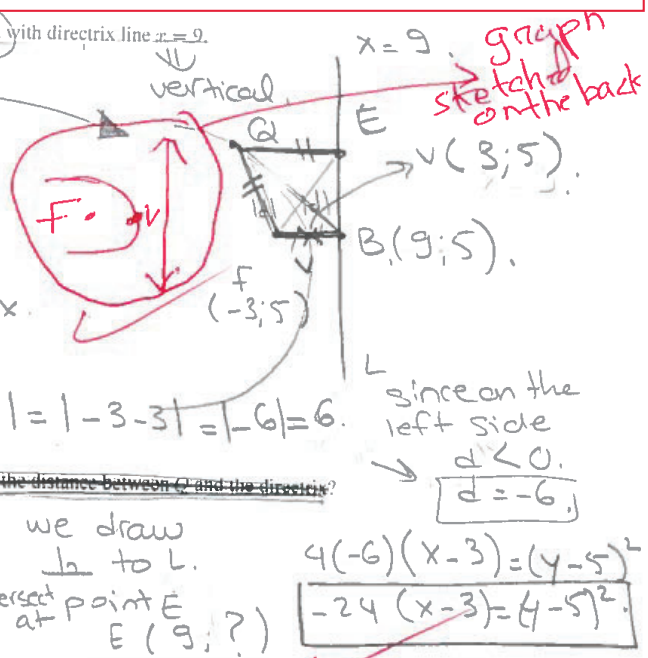 with directrix line x = 9.
x = 9.
graph
sketched
on the back
vertical.
Q
E
V(3;5).
F.
V
B(9;5).
f
(-3;5)
V
x.
| = |-3-3| = |-6| = 6.
L
since on the
left side
d < 0.
d = -6.
the distance between Q and the directrix?
we draw
⊥ to L.
ersect point E
at
E (9;?)
4(-6)(x-3)=(y-5)²
-24(x-3)=(y-5)².